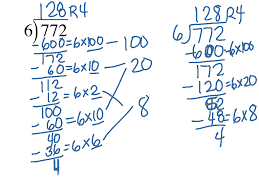 128R4
6)772
-600=6×100 — 100
172
-60=6×10 20
112
-12=6×2 8
100
-60=6×10
40
-36=6×6
4
128R4
6)772
-600=6×100
172
-120=6×20
52
-48=6×8
4